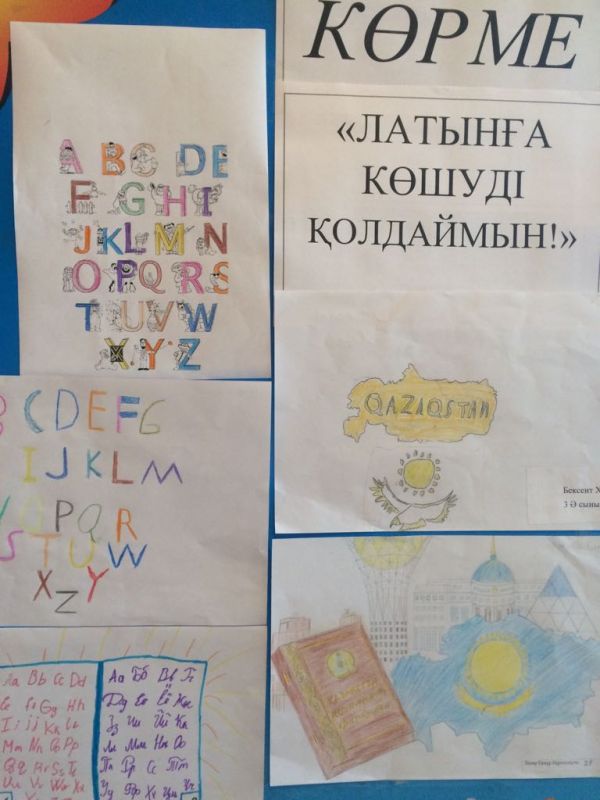 КӨРМЕ
«ЛАТЫНҒА
КӨШУДІ
ҚОЛДАЙМЫН!»
A B C D E
F G H I
J K L M N
O P Q R S
T U V W
X Y Z
C D E F G
I J K L M
P Q R
S T U W
X Y
Z
QAZAQSTAN
Бексент
3 Ә сынып
Aa Bb Cc Dd
Gg Hh
Ii Jj Kk
Mm Nn Pp
Ss
Uu Vv Ww Xx
Аа Бб Вв Гг
Ее Ёё Жж
Зз Ии Йй Кк
Лл Мм Нн Оо
Пп Рр Сс Тт
Уу Фф Хх Цц Чч